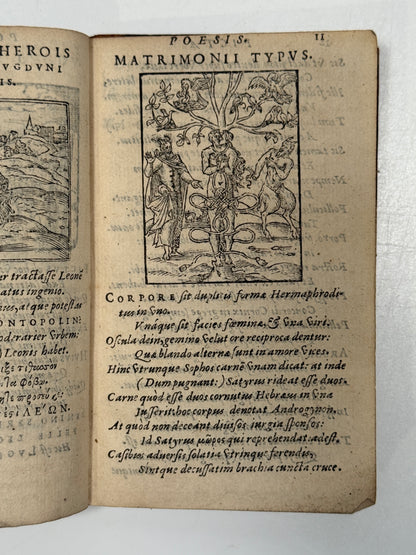 HEROIS
VGDVNI
IS.
er tractasse Leonē
atus ingenio.
es, at que potestas
ONTOPOLIN:
od, rarier vrbem:
Leonis habet.
POESIS. 11
MATRIMONII TYPVS.
CORPORE sit duplici formæ Hermaphrodi-
tus in vno.
Vnaque sit facies fœminæ, & vna viri.
Oscula dein gemino velut ore reciproca dentur:
Quæ blando alternæ sunt in amore vices.
Hinc vtrunque Sophos carnē vnam dicat: at inde
(Dumpugnant:) Satyrus rideat esse duos.
Carne quod esse duos cornutus Hebræus in vna
Iusserit: hoc corpus denotat Androgynon.
At quod non deceant diuisos iurgia sponsos:
Id Satyrus μωρος qui reprehendat adest.
Casibus aduersis solatia vtrinque ferendis,
Sintque decussatim brachia cuncta cruce.